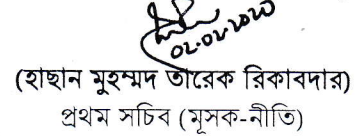 ০২.০২.২০২০
(হাছান মুহম্মদ তারেক রিকাবদার)
প্রথম সচিব (মূসক-নীতি)